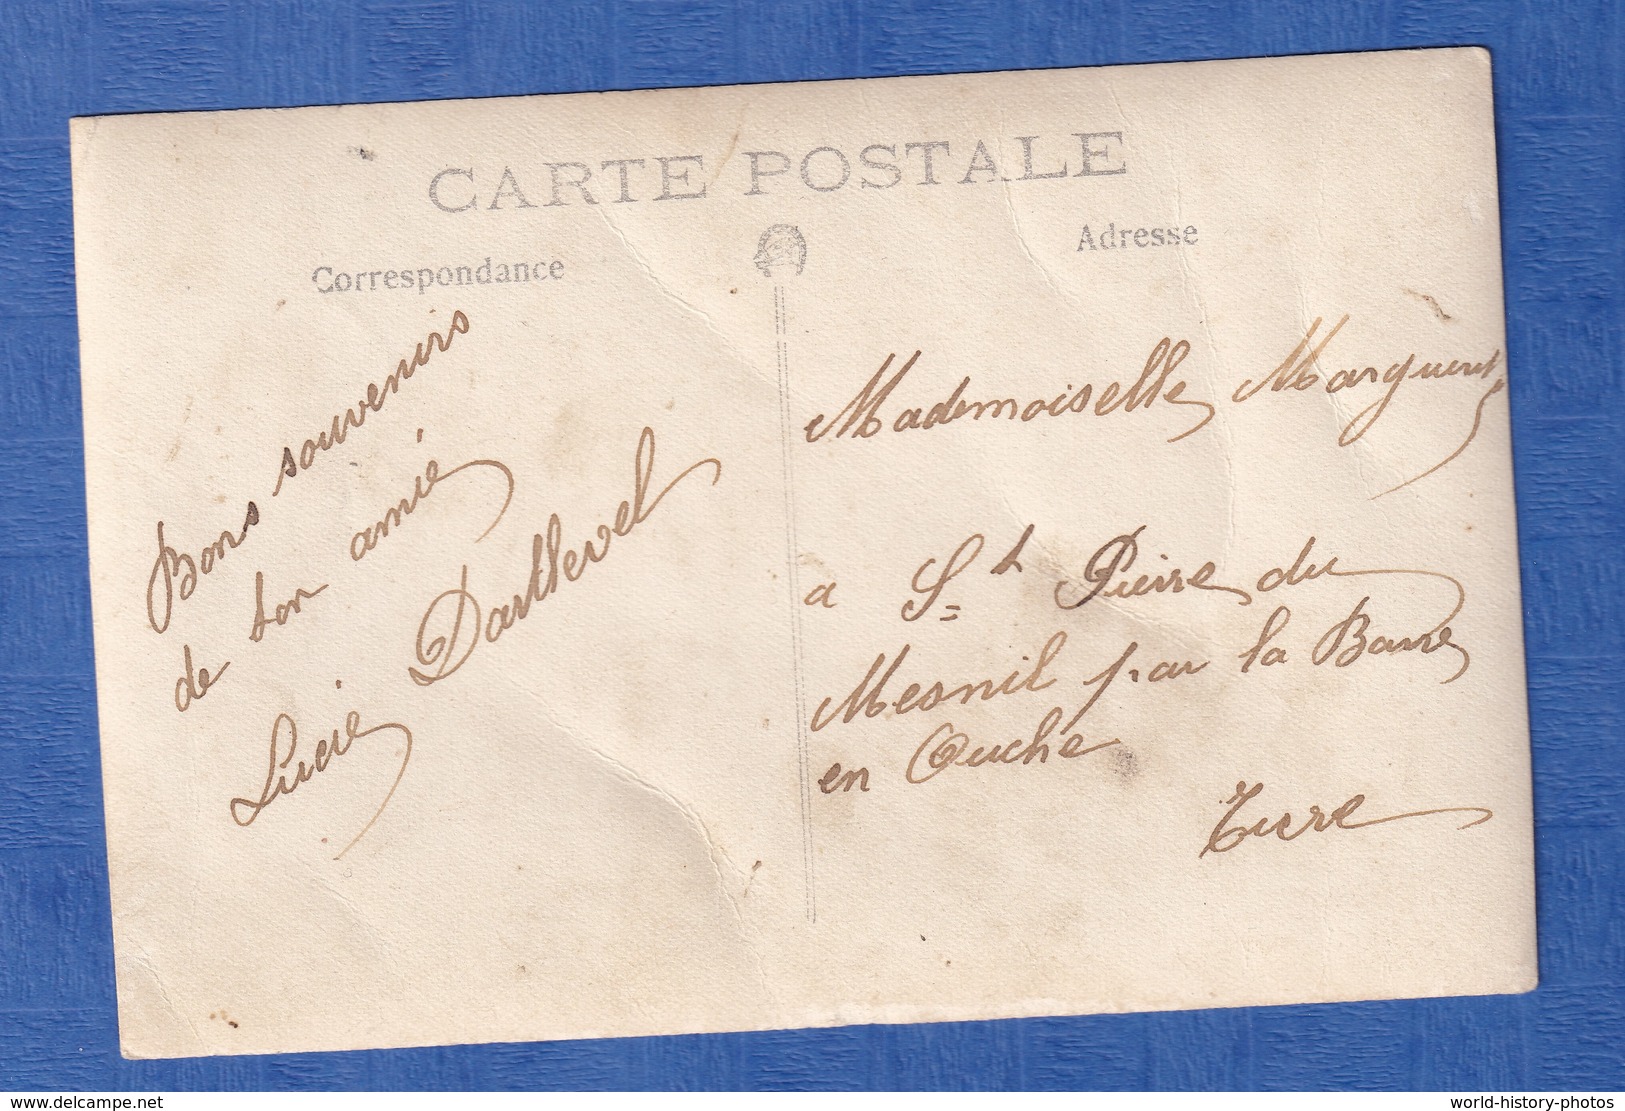 CARTE POSTALE
Correspondance
Adresse
Bons souvenirs
de ton amie
Lucie Darthevel
Mademoiselle Marguerite
a St Pierre du
Mesnil par la Barre
en Ouche
Eure
www.delcampe.net
world-history-photos